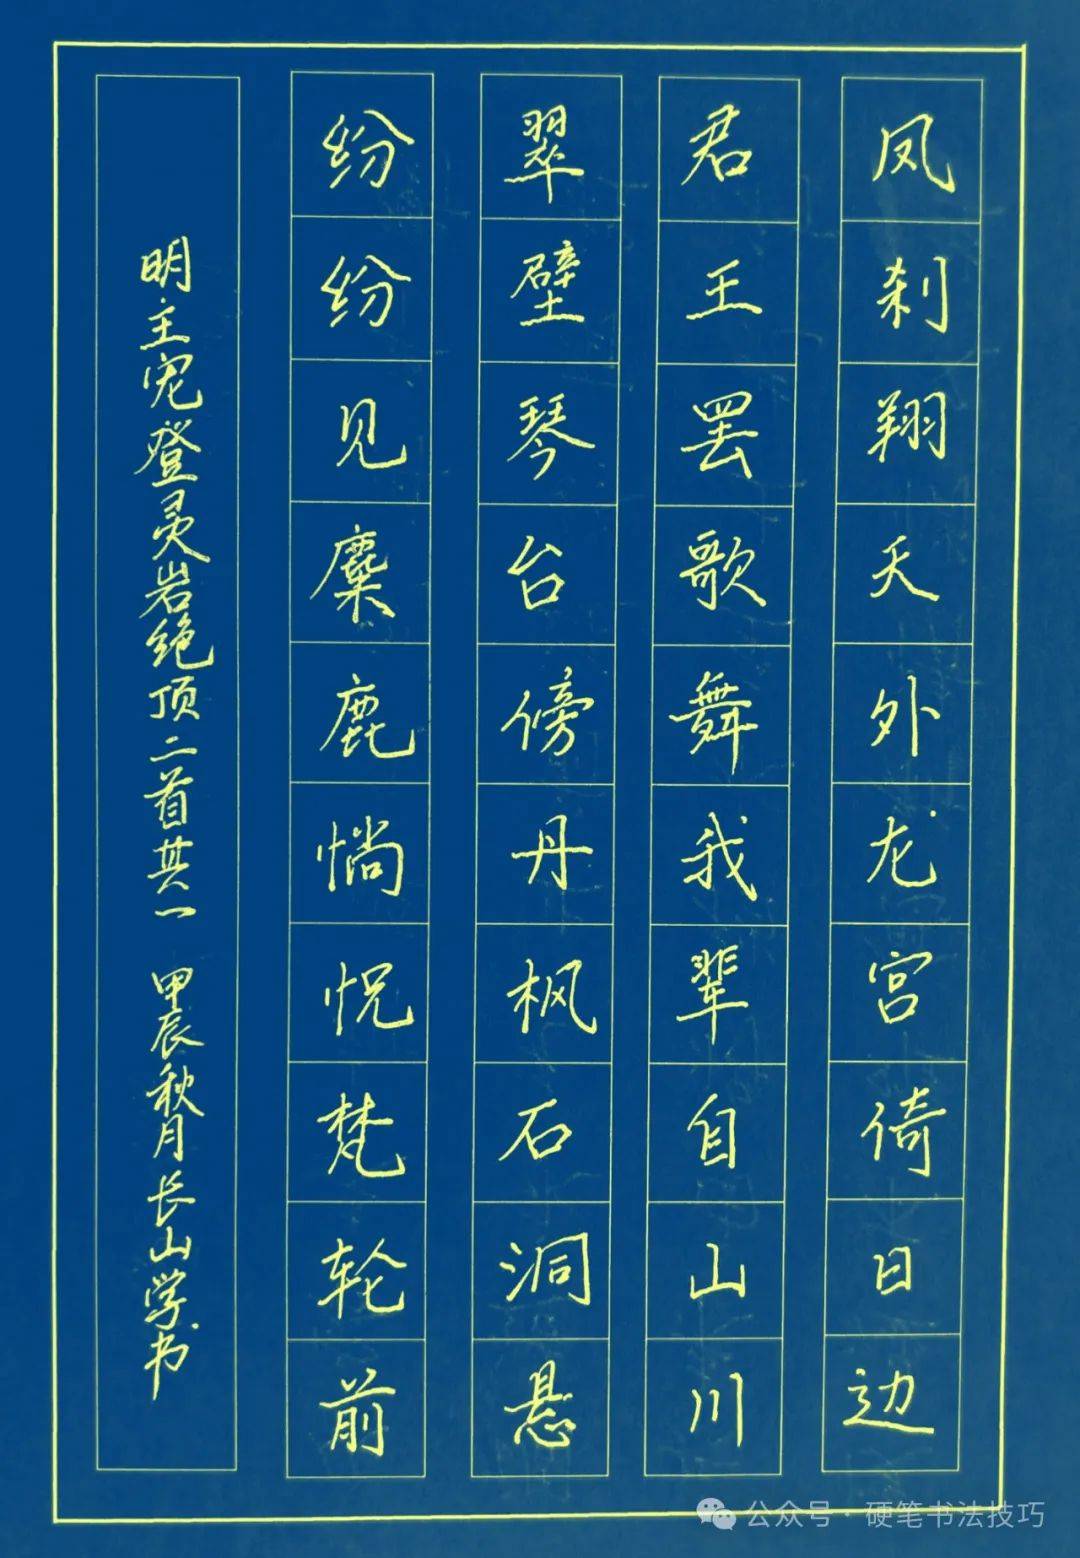 凤刹翔天外龙宫倚日边
君王罢歌舞我辈自山川
翠壁琴台傍丹枫石洞悬
纷纷见麋鹿惝怳梵轮前
明王宠登灵岩绝顶二首其一 甲辰秋月长山学书
公众号·硬笔书法技巧